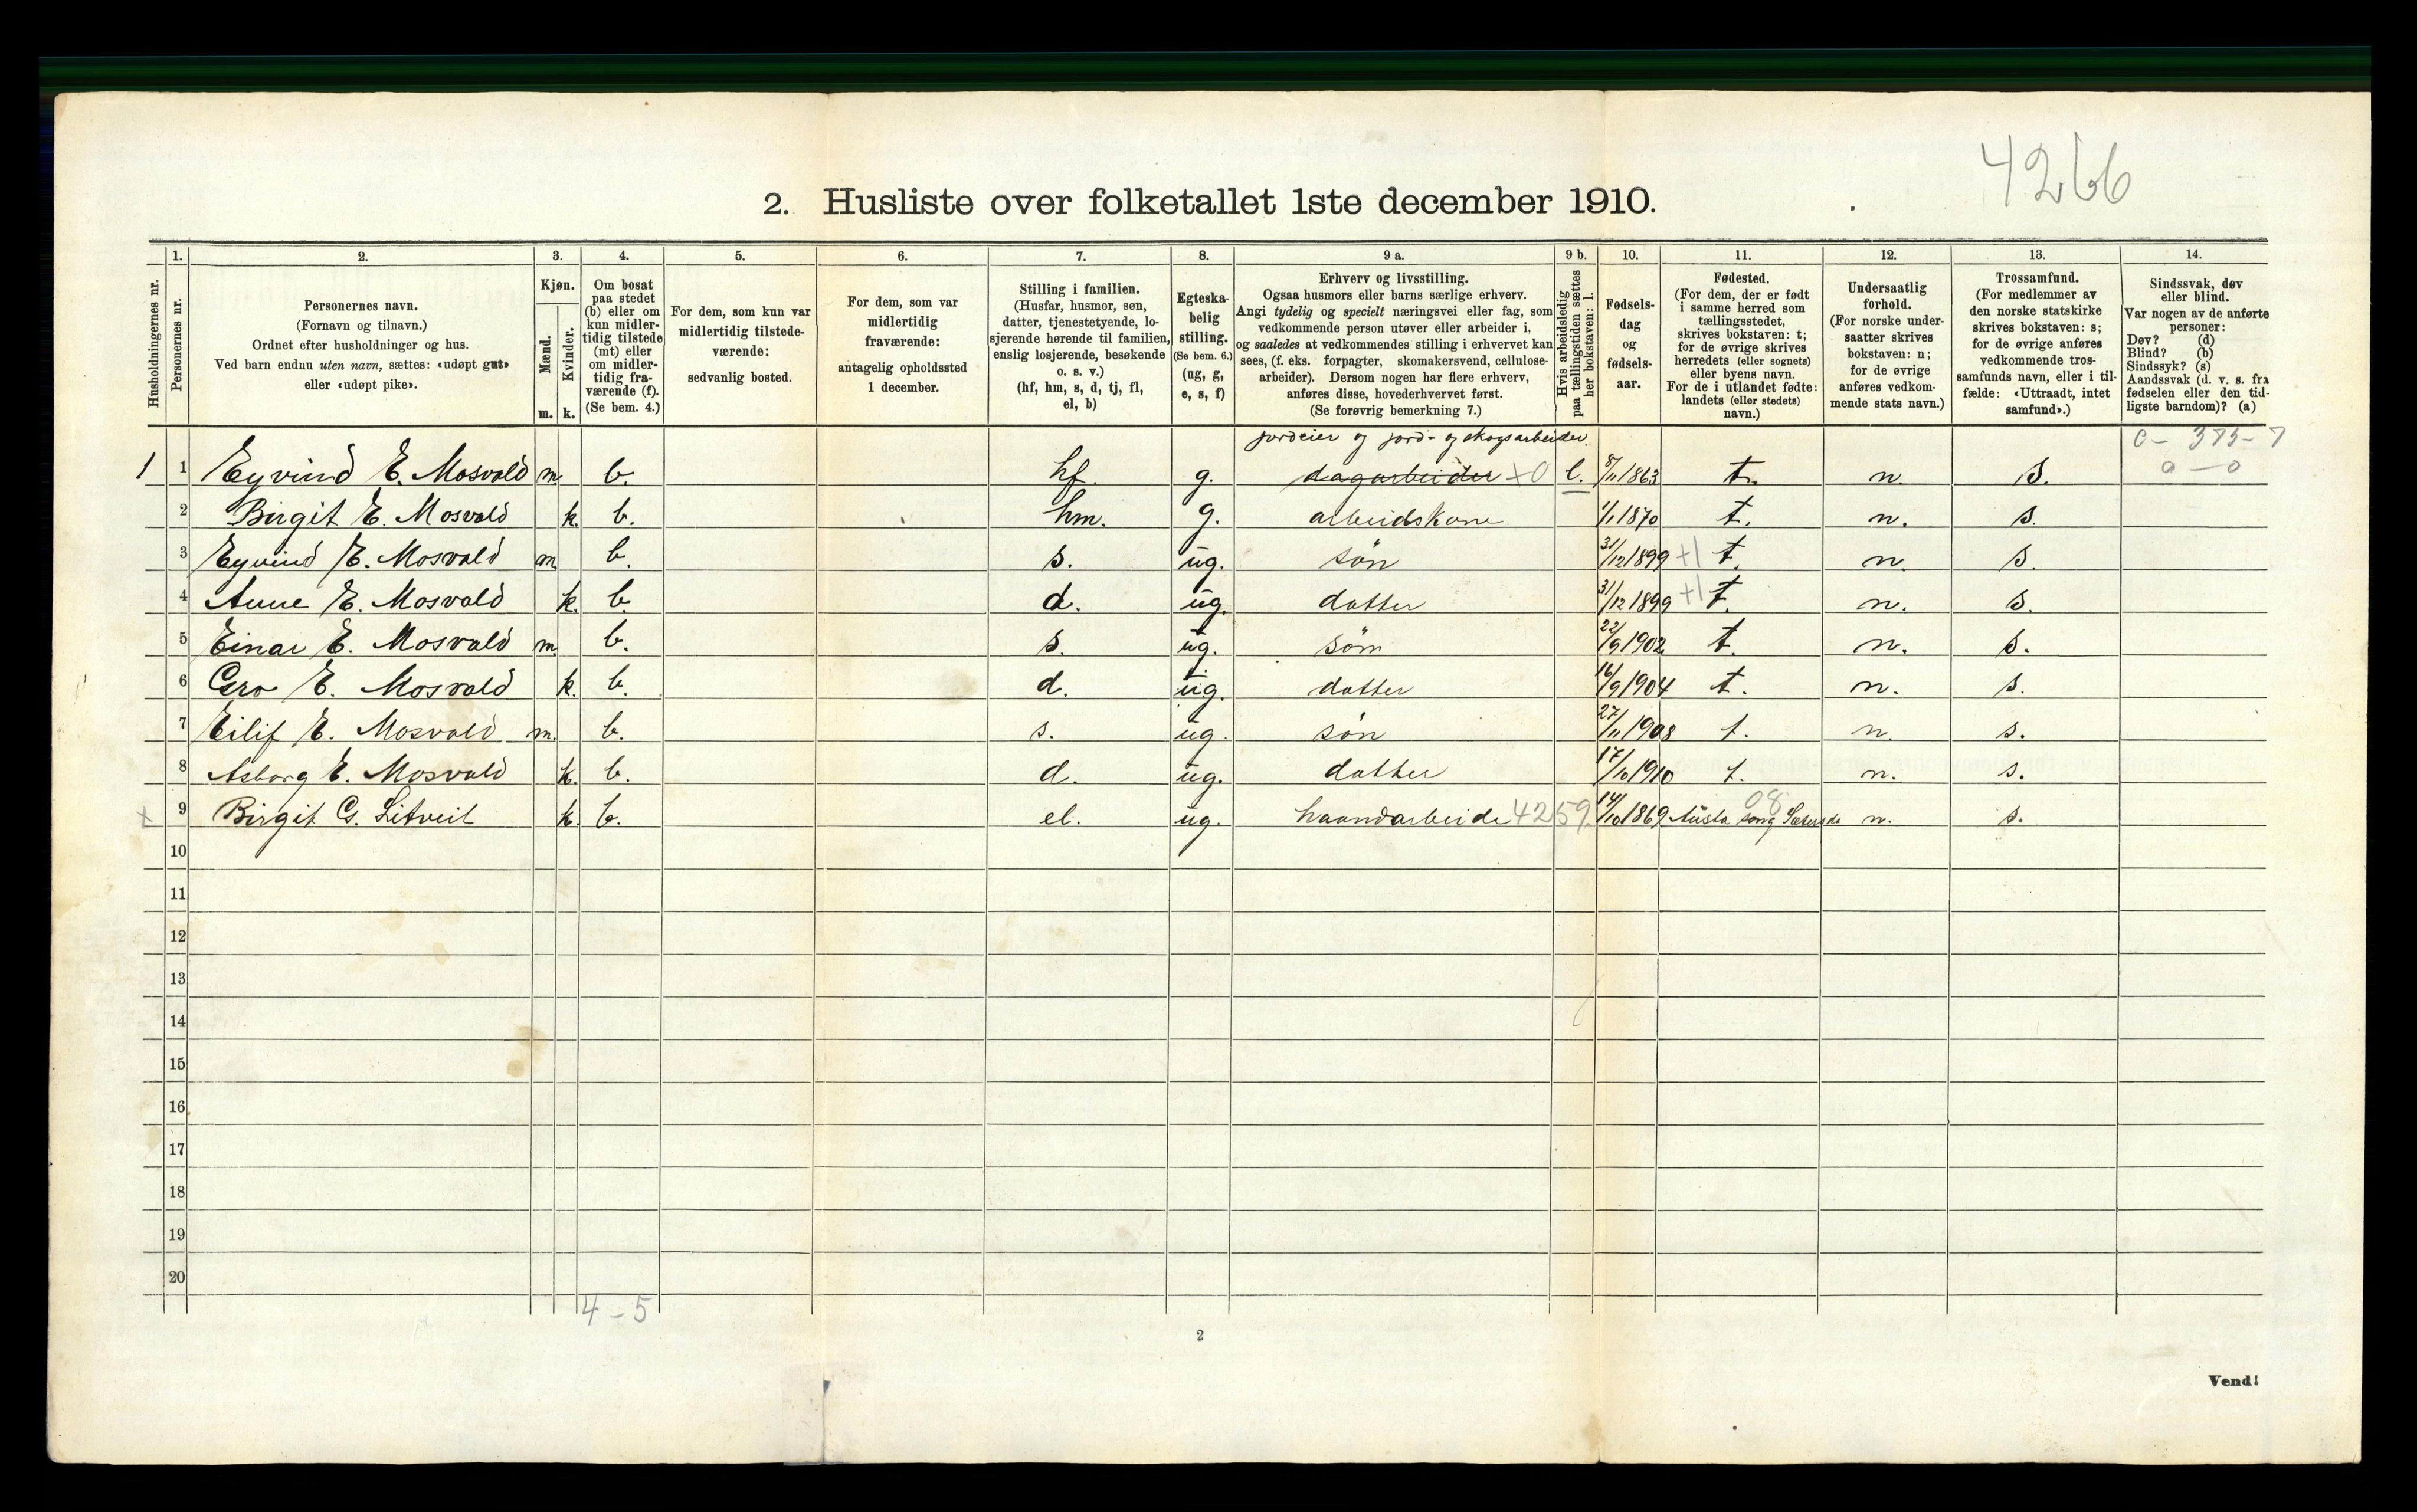 4266
2. Husliste over folketallet 1ste december 1910.
Husholdningernes nr.
1.
Personernes nr.
2.
Personernes navn.
(Fornavn og tilnavn.)
Ordnet efter husholdninger og hus.
Ved barn endnu uten navn, sættes: «udøpt gut»
eller «udøpt pike».
3.
Kjøn.
Mænd.
Kvinder.
m. k.
4.
Om bosat
paa stedet
(b) eller om
kun midler-
tidig tilstede
(mt) eller
om midler-
tidig fra-
værende (f).
(Se bem. 4.)
5.
For dem, som kun var
midlertidig tilstede-
værende:
sedvanlig bosted.
6.
For dem, som var
midlertidig
fraværende:
antagelig opholdssted
1 december.
7.
Stilling i familien.
(Husfar, husmor, søn,
datter, tjenestetyende, lo-
sjerende hørende til familien,
enslig losjerende, besøkende
o. s. v.)
(hf, hm, s, d, tj, fl,
el, b)
8.
Egteska-
belig
stilling.
(Se bem. 6.)
(ug, g,
e, s, f)
9 a.
Erhverv og livsstilling.
Ogsaa husmors eller barns særlige erhverv.
Angi tydelig og specielt næringsvei eller fag, som
vedkommende person utøver eller arbeider i,
og saaledes at vedkommendes stilling i erhvervet kan
sees, (f. eks. forpagter, skomakersvend, cellulose-
arbeider). Dersom nogen har flere erhverv,
anføres disse, hovederhvervet først.
(Se forøvrig bemerkning 7.)
9 b.
Hvis arbeidsledig
paa tællingstiden sættes
her bokstaven: l.
10.
Fødsels-
dag
og
fødsels-
aar.
11.
Fødested.
(For dem, der er født
i samme herred som
tællingsstedet,
skrives bokstaven: t;
for de øvrige skrives
herredets (eller sognets)
eller byens navn.
For de i utlandet fødte:
landets (eller stedets)
navn.)
12.
Undersaatlig
forhold.
(For norske under-
saatter skrives
bokstaven: n;
for de øvrige
anføres vedkom-
mende stats navn.)
13.
Trossamfund.
(For medlemmer av
den norske statskirke
skrives bokstaven: s;
for de øvrige anføres
vedkommende tros-
samfunds navn, eller i til-
fælde: «Uttraadt, intet
samfund».)
14.
Sindssvak, døv
eller blind.
Var nogen av de anførte
personer:
Døv? (d)
Blind? (b)
Sindssyk? (s)
Aandssvak (d. v. s. fra
fødselen eller den tid-
ligste barndom)? (a)
jordeier og jord- og skogsarbeider.
0 - 375 - 7
1 1 Eyvind E. Mosvald m. b. hf. g. dagarbeider x0 l. 8/11 1863 t. n. s. 0 - 0
2 Birgit E. Mosvald k. b. hm. g. arbeidskone 1/1 1870 t. n. s.
3 Eyvind E. Mosvald m. b. s. ug. søn 31/12 1899 +1 t. n. s.
4 Anne E. Mosvald k. b. d. ug. datter 31/12 1899 +1 t. n. s.
5 Einar E. Mosvald m. b. s. ug. søn 22/9 1902 t. n. s.
6 Gro E. Mosvald k. b. d. ug. datter 16/9 1904 t. n. s.
7 Eilif E. Mosvald m. b. s. ug. søn 27/11 1908 t. n. s.
8 Asborg E. Mosvald k. b. d. ug. datter 17/10 1910 t. n. s.
08
x 9 Birgit G. Litveit k. b. el. ug. haandarbeide 4259 14/10 1869 n. s.
10
11
12
13
14
15
16
17
18
19
20
4 - 5
2
Vend!